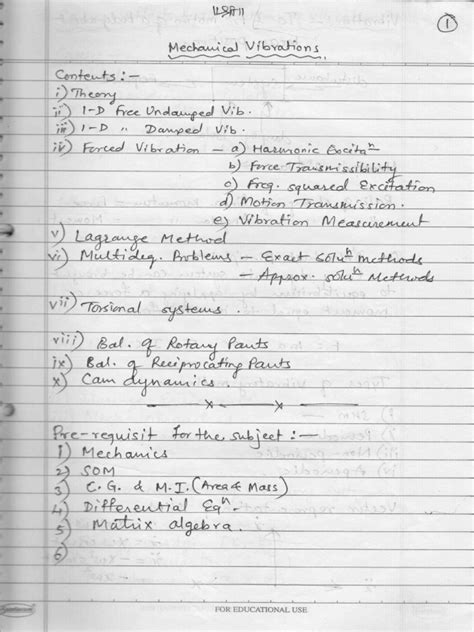 ॥ श्री ॥
1
Mechanical Vibrations.
Contents :-
i) Theory
ii) 1-D Free Undamped Vib.
iii) 1-D " Damped Vib.
iv) Forced Vibration - a) Harmonic Excitaⁿ
b) Force Transmissibility
c) Freq. squared Excitation
d) Motion Transmission.
e) Vibration Measurement
v) Lagrange Method
vi) Multideg. Problems - Exact soluⁿ methods
- Approx. soluⁿ Methods
vii) Torsional systems.
viii) Bal. of Rotary Parts
ix) Bal. of Reciprocating Parts
x) Cam dynamics.
Pre-requisit for the subject :-
1) Mechanics
2) SOM
3) C.G. & M.I. (Area & Mass)
4) Differential Eqⁿ
5) Matrix algebra.
6)
FOR EDUCATIONAL USE